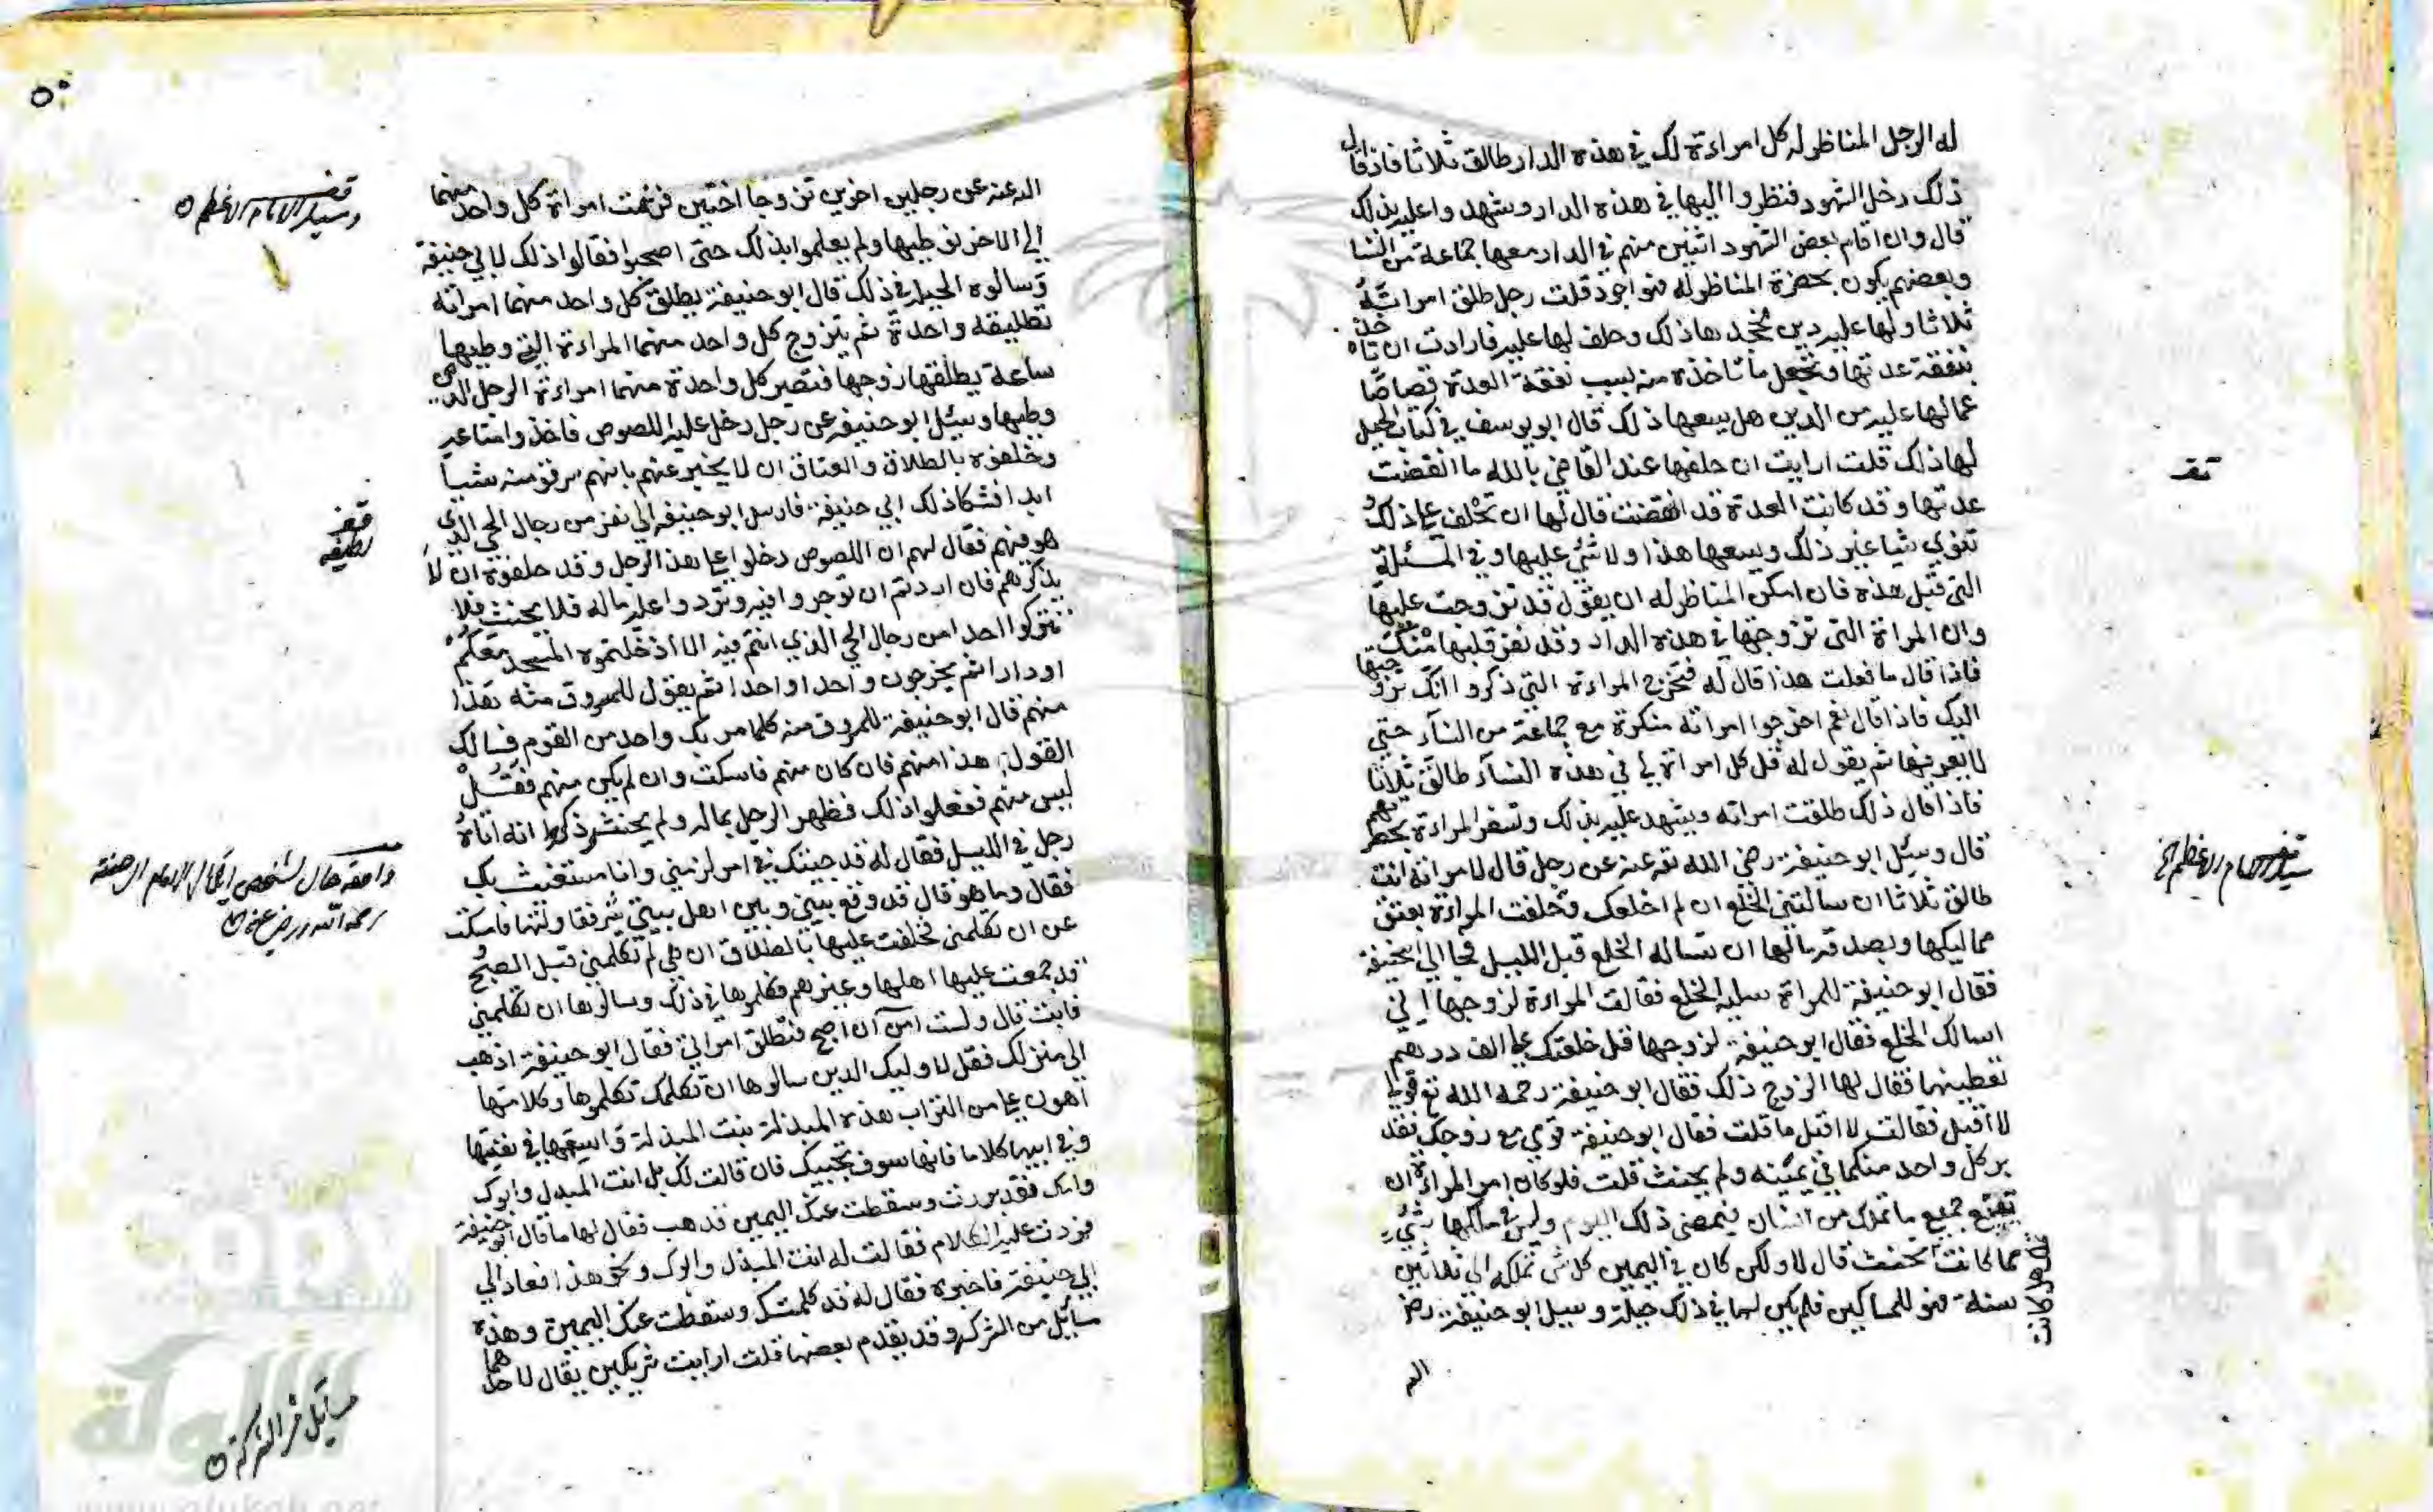 له الرجل المناظر له كل امراءة لك في هذه الدار طالق ثلاثا فاذ قال
ذلك دخل الشهود فنظروا اليها في هذه الدار وشهدوا عليه بذلك
قال وان اقام بعض الشهود اثنين منهم في الدار معها جماعة من النسا
وبعضهم يكون بحضرة المناظر له فهو اجود قلت رجل طلق امراته
ثلاثا ولها عليه دين فجحدها ذلك وحلف لها عليه فارادت ان تاخذ
بنفقة عدتها وتجعل ما تاخذه منه بسبب نفقة العدة قصاصا
عمالها عليه من الدين هل يسعها ذلك قال ابو يوسف في كتاب الحيل
لها ذلك قلت ارايت ان حلفها عند القاضي بالله ما انقضت
عدتها وقد كانت العدة قد انقضت فقال لها ان تحلف على ذلك و
تنوي شيا غير ذلك ويسعها هذا ولا شئ عليها وفي المسئلة
التي قبل هذه فان امكن المناظر له ان يقول قد تزوجت عليها
وان المراة التي تزوجتها في هذه الدار وقد نفر قلبها منك
فاذا قال ما فعلت هذا قال له فتخرج المراءة التي ذكروا انك تزوجتها
اليك فاذا قال نعم اخرجوا امراته منكرة مع جماعة من النسآء حتى
لا يعرفها ثم يقول له قل كل امراة لي في هذه النسآء طالق ثلاثا
فاذا قال ذلك طلقت امراته ويشهد عليه بذلك وتسفر المراءة بحضرتهم
قال وسئل ابو حنيفة رضي الله تع عنه عن رجل قال لامراته انت
طالق ثلاثا ان سالتني الخلع ان لم اخلعك وحلفت المراءة بعتق
مماليكها وبصدقة مالها ان تساله الخلع قبل الليل فجا الى ابي حنيفة
فقال ابو حنيفة للمراة سليه الخلع فقالت المراءة لزوجها اني
اسالك الخلع فقال ابو حنيفة لزوجها قل خلعتك على الف درهم
تعطينها فقال لها الزوج ذلك فقال ابو حنيفة رحمه الله تع قولي
لا اقبل فقالت لا اقبل ما قلت فقال ابو حنيفة قومي مع زوجك فقد
بر كل واحد منكما في يمينه ولم يحنث قلت فلو كان امر المراءة ان
جميع ما تملك من انسان فيمضي ذلك اليوم وليس في ملكها شئ
مما كانت تحنث قال لا ولكن كان في اليمين كل شي تملكه الى ثلاثين
سنة فهو للمساكين فلم يكن لها في ذلك حيلة وسيل ابو حنيفة رض
الله
تقف
الله عنه عن رجلين اخوين تزوجا اختين فزفت امراة كل واحد منهما
الى الاخر فوطيها ولم يعلموا بذلك حتى اصبحوا فقالوا ذلك لابي حنيفة
وسالوه الحيلة في ذلك قال ابو حنيفة يطلق كل واحد منهما امراته
تطليقة واحدة ثم يتزوج كل واحد منهما المراءة التي وطيها
ساعة يطلقها زوجها فتصير كل واحدة منهما امراءة الرجل الذي
وطيها وسئل ابو حنيفة عن رجل دخل عليه اللصوص فاخذوا متاعه
وحلفوه بالطلاق والعتاق ان لا يخبر عنهم بانهم سرقو منه شيا
ابدا فشكا ذلك الى ابي حنيفة فارسل ابو حنيفة الى نفر من رجال الحي الذي
هو فيهم فقال لهم ان اللصوص دخلوا على هذا الرجل وقد حلفوه ان لا
يذكرهم فان اردتم ان توجروا فيه وتردوا عليه ماله فلا يحنث فلا
تتركوا احدا من رجال الحي الذي انتم فيه الا ادخلتموه المسجد معكم
او دارا ثم يخرجون واحدا واحدا ثم يقول للمسروق منه هذا
منهم قال ابو حنيفة للمسروق منه كلما مر بك واحد من القوم فسالك
القول هذا منهم فان كان منهم فاسكت وان لم يكن منهم فقل
ليس منهم ففعلوا ذلك فظهر الرجل بماله ولم يحنث وذكر انه اتاه
رجل في الليل فقال له قد جيتك في امر لزمني وانا مستغيث بك
فقال وما هو قال قد وقع بيني وبين اهل بيتي شر فقاولتها فامسكت
عن ان تكلمني فحلفت عليها بالطلاق ان هي لم تكلمني قبل الصبح
قد جمعت عليها اهلها وغيرهم فكلموها في ذلك وسالوها ان تكلمني
فابت قال ولست امن ان اصبح فتطلق امراتي فقال ابو حنيفة اذهب
الى منزلك فقل لاوليك الذين سالوها ان تكلمك تكلموها وكلامها
اهون علي من التراب هذه المبذلة بنت المبذلة واسمعها في نفسها
وفي ابيها كلاما فانها سوف تجيبك فان قالت لك بل انت المبذل وابوك
وامك فقد بررت وسقطت عنك اليمين فذهب فقال لها ما قال ابو حنيفة
فردت عليه الكلام فقالت له انت المبذل وابوك ونحو هذا فعاد الى
ابي حنيفة فاخبره فقال له قد كلمتك وسقطت عنك اليمين وهذه
مسائل من الشركة وقد يقدم بعضها قلت ارايت شريكين يقال لاحدهما
قف
لطيفة
رحمه الله ورضي عنه
مسائل من الشركة